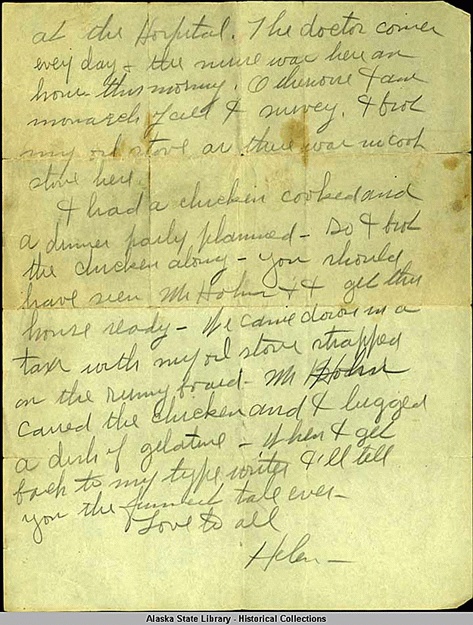 at the Hospital. The doctor comes
every day & the nurse was here an
hour this morning. Otherwise I am
monarch of all I survey. I bro't
my oil stove as there was no cook
stove here.
I had a chicken cooked and
a dinner party planned - So I bro't
the chicken along - You should
have seen Mr Hohn & I get this
house ready - We came down in a
taxi with my oil stove strapped
on the runing board. Mr Hohn
carried the chicken and I lugged
a dish of gelatine - When I get
back to my type writer I'll tell
you the funniest tale ever -
Love to all
Helen -
Alaska State Library - Historical Collections